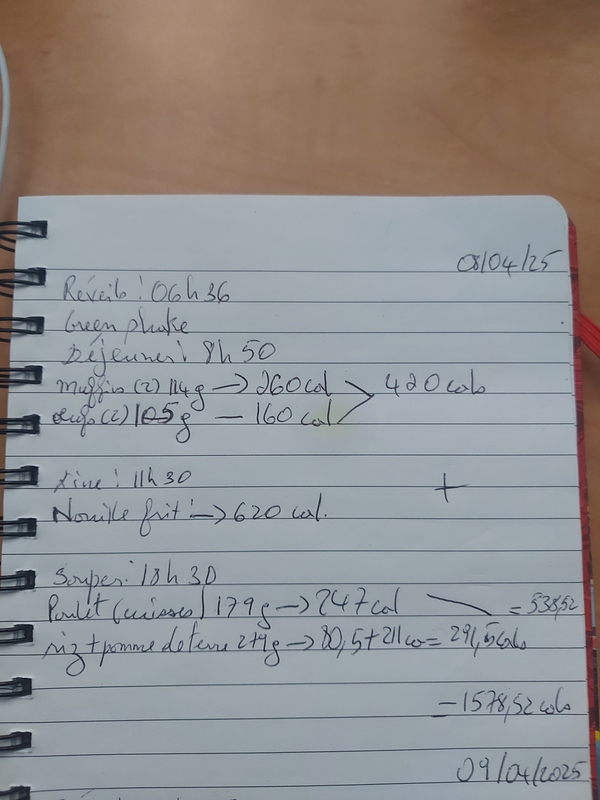 08/04/25
Réveils : 06h36
Green phake
Déjeuner : 8h50
Muffins (2) 114g → 260 cal
420 cals
Oeufs (2) 105g — 160 cal
Dine : 11h30
+
Nouille frit : → 620 cal.
Souper : 18h30
Poulet (cuisses) 179g → 247 cal
= 538,52
riz + pomme de terre 274g → 80,5 + 211 co = 291,5 cals
= 1578,52 cals
09/04/2025